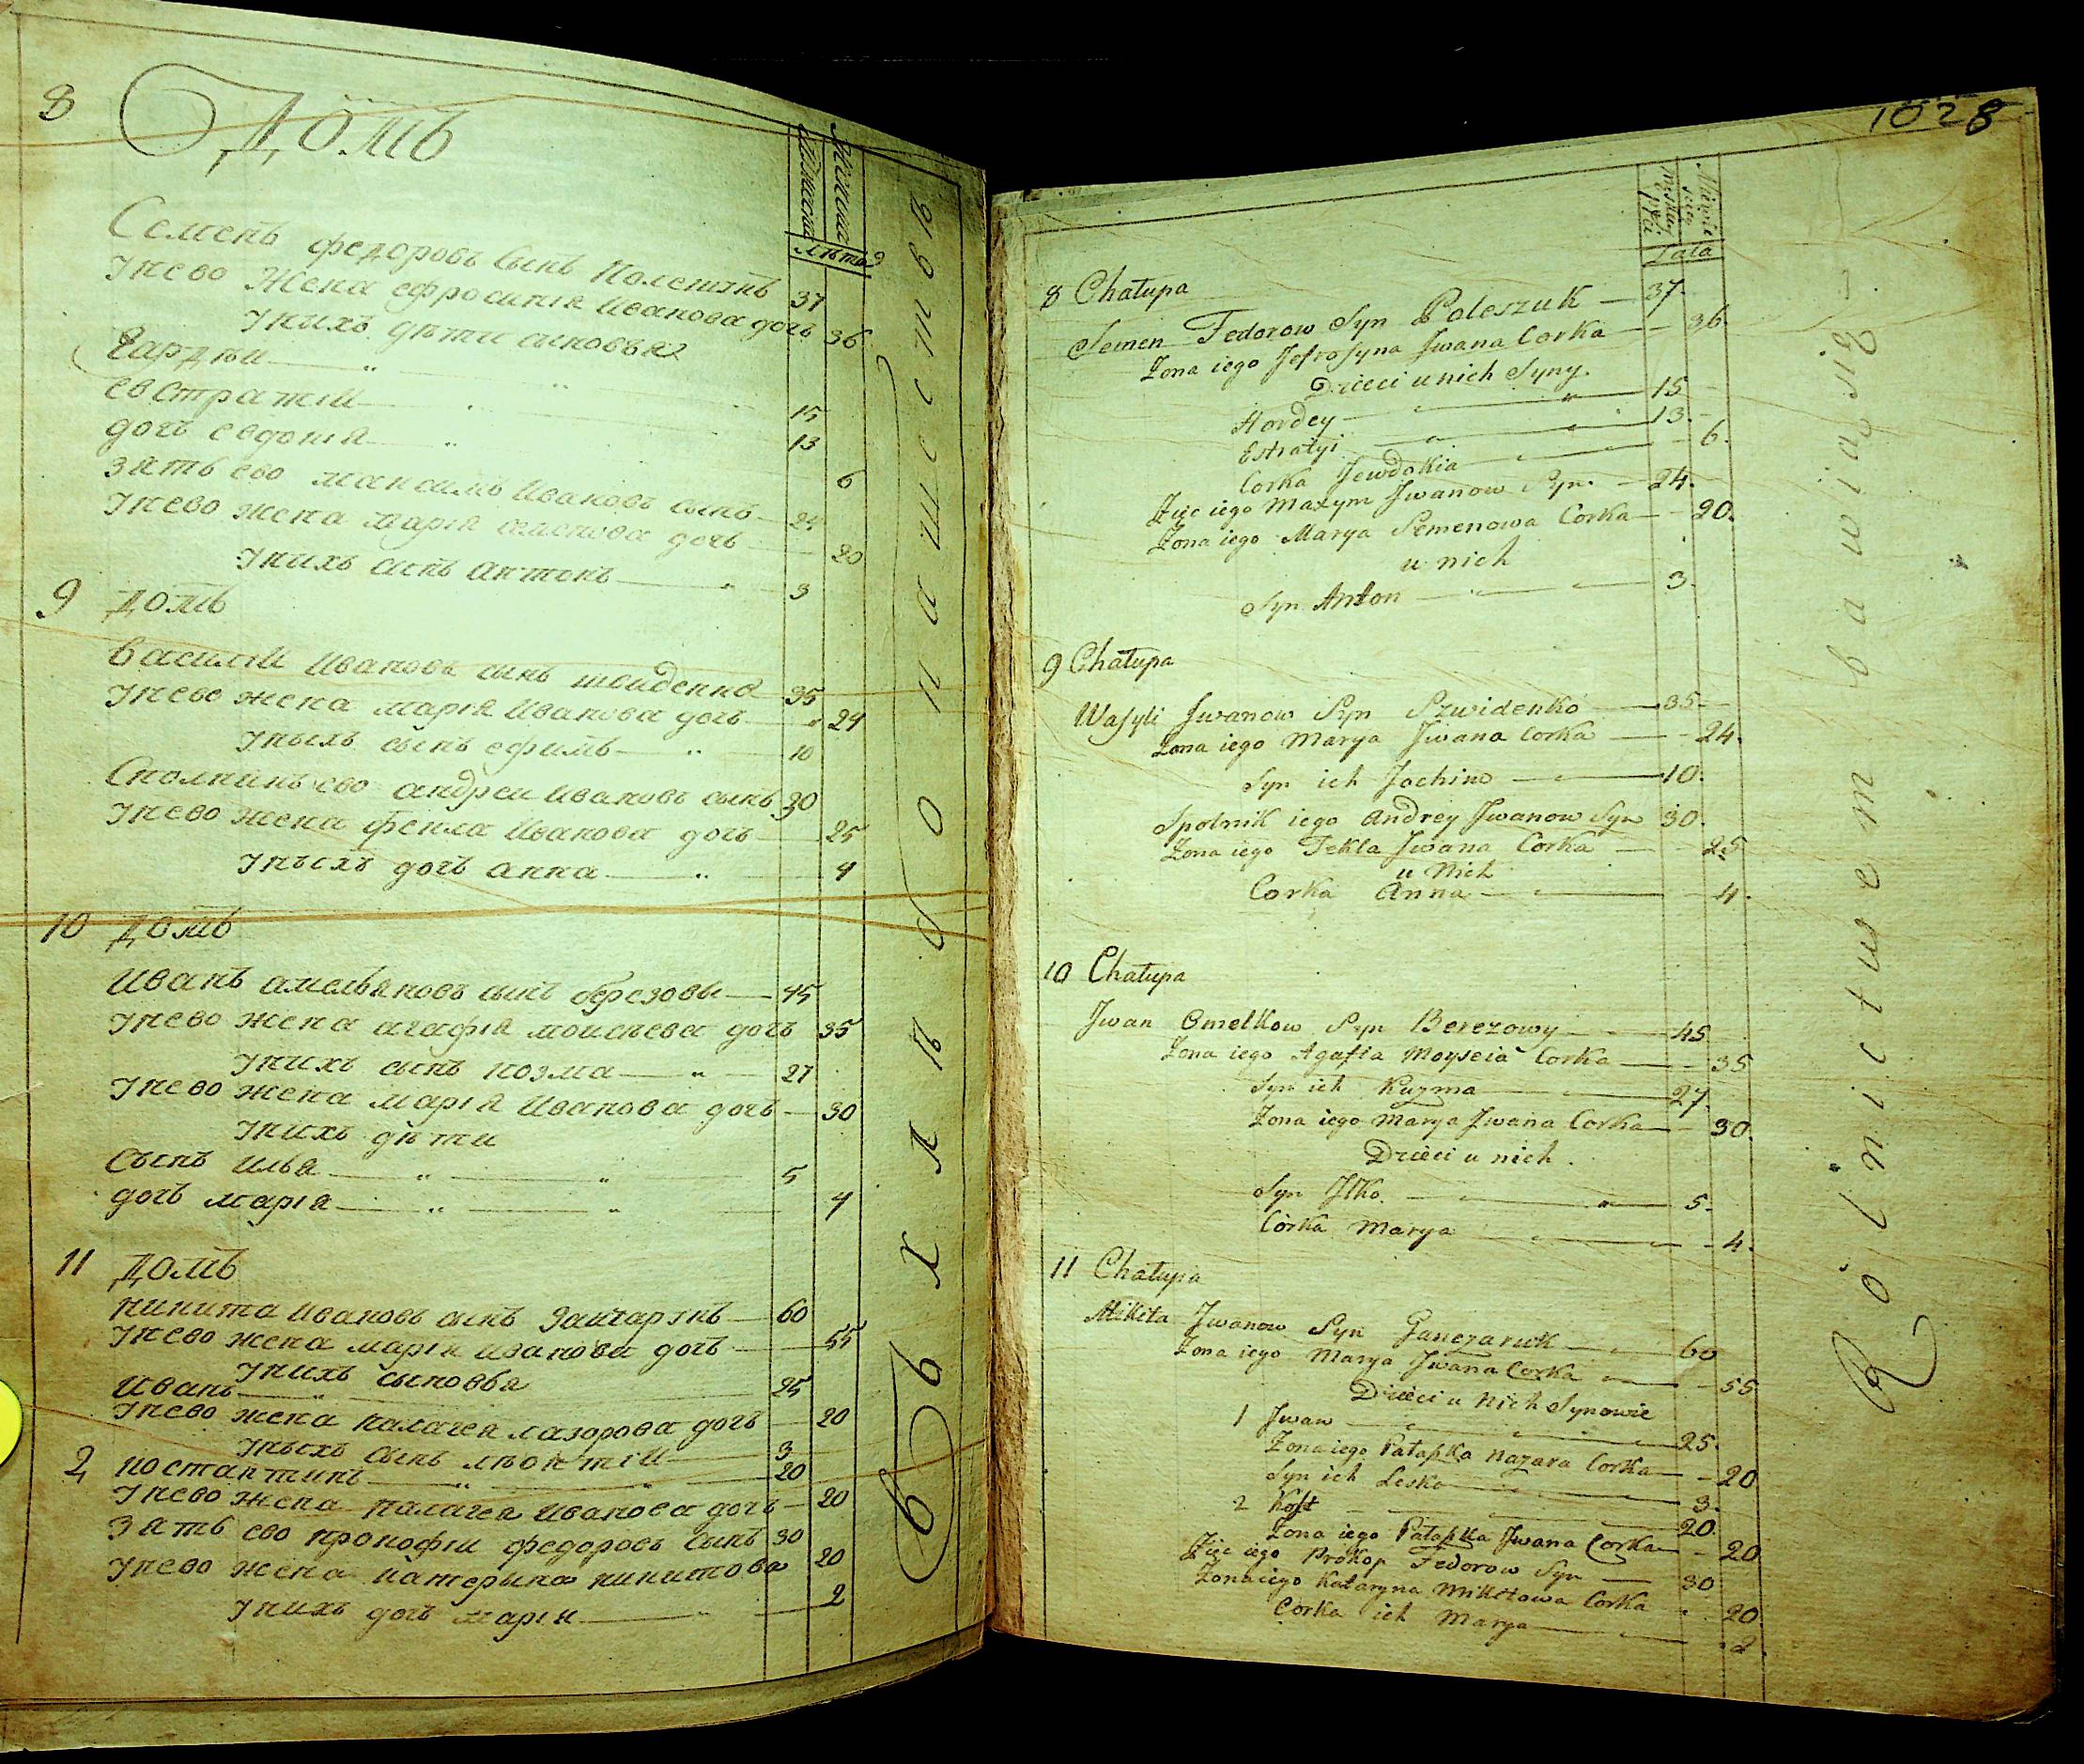 8 Домъ
Мужеска
Женска
лѣта
Семенъ федоровъ сынъ Полешукъ 37
унево жена ефросинія Иванова дочь 36
унихъ дѣти синовья
Гардѣи 15
евстратіи 13
дочь евдокія 6
зять ево максимъ Ивановъ сынъ 24
унево жена марія семенова дочь 20
унихъ синъ антонъ 3
9 Домъ
Василіи Ивановъ синъ швиденко 35
унево жена марія Иванова дочь 24
уныхъ сынъ ефимъ 10
Сполникъ ево андреи Ивановъ сынъ 30
унево жена фекла Иванова дочь 25
уныхъ дочь анна 4
10 Домъ
Иванъ амельяновъ синъ березовы 45
унево жена агафія моисѣева дочь 35
унихъ сынъ козма 27
унево жена марія Иванова дочь 30
унихъ дѣти
Сынъ илья 5
дочь марія 4
11 Домъ
никита Ивановъ синъ ганчарукъ 60
унево жена марія иванова дочь 55
унихъ сыновья
Иванъ 25
унево жена палагея лазорова дочь 20
уныхъ сынъ лѣонтіи 3
2 костантинъ 20
унево жена палагея Иванова дочь 20
зять ево прокофіи федоровъ сынъ 30
унево жена катерына никитова 20
унихъ дочь марія 2
1028
Męskiey płci
Lata
8 Chałupa
Semen Fedorow Syn Poleszuk 37
Zona iego Jefrosyna Jwana Corka 36.
Dzieci u nich Syny.
Hordey 15
Estratyi 13.
Corka Jewdokia 6.
Zięc iego Maxym Jwanow Syn. 24.
Zona iego Marya Semenowa Corka 20.
u nich
Syn Anton 3.
9 Chałupa
Wasyli Jwanow Syn Szwidenko 35.
Zona iego Marya Jwana Corka 24.
Syn ich Jochim 10.
Spolnik iego Andrey Jwanow Syn 30.
Zona iego Tekla Jwana Corka 25
u Nich
Corka Anna 4.
10 Chałupa
Jwan Omelkow Syn Berezowy 45
Zona iego Agafia Moyseia Corka 35
Syn ich Kuzma 27
Zona iego Marya Jwana Corka 30.
Dzieci u nich.
Syn Jlko. 5.
Córka Marya 4.
11 Chałupa
Mikita Jwanow Syn Ganczaruk 60
Zona iego Marya Jwana Corka 55
Dzieci u Nich Synowie
1 Jwan 25.
Zona iego Pałaszka Nazara Corka 20
Syn ich Lesko 3.
2 Kost 20.
Zona iego Pałaszka Jwana Corka 20
Zięc iego Prokop Fedorow Syn 30
Zona iego Kataryna Mikitowa Corka 20
Corka ich Marya 2.
Rolnictwem bawią się